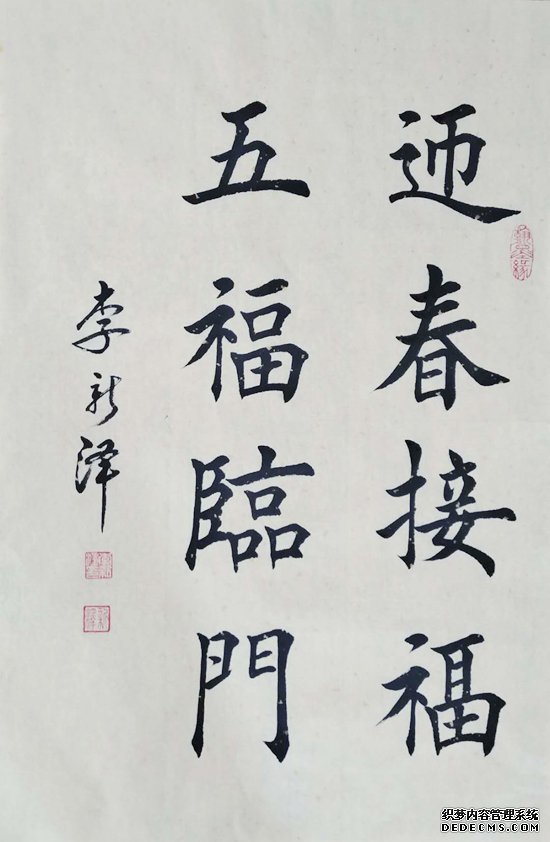 迊春接福
五福臨門
李新泽
织梦内容管理系统
DEDECMS.COM